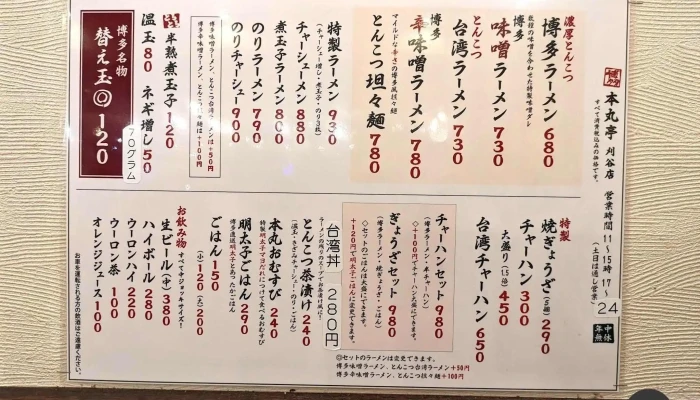 本丸亭 刈谷店
すべて消費税込みの価格です。
営業時間 11〜15時 17〜24
(土日は通し営業)
年中無休
濃厚とんこつ
博多ラーメン 680
博多
味噌ラーメン 730
とんこつ
台湾ラーメン 730
博多
辛味噌ラーメン 780
マイルドな辛さの博多風坦々麺
とんこつ坦々麺 780
特製ラーメン 930
(チャーシュー増し・煮玉子・のり3枚)
チャーシューメン 880
煮玉子ラーメン 800
のりラーメン 790
のりチャーシュー 900
博多味噌ラーメン、とんこつ台湾ラーメンは+50円
博多辛味噌ラーメン、とんこつ坦々麺は+100円
半熟煮玉子 120
温玉 80 ネギ増し 50
博多名物
替え玉◎120
70グラム
特製
焼ぎょうざ(5個) 290
チャーハン 300
大盛り(1.5倍) 450
台湾チャーハン 650
チャーハンセット 980
(博多ラーメン・半チャーハン)
◇+100円でチャーハン大盛にできます。
ぎょうざセット 980
(博多ラーメン・焼ぎょうざ・ごはん)
◇セットのごはんは大盛にできます。
+120円で明太子ごはんに変更できます。
◎セットのラーメンは変更できます。
博多味噌ラーメン、とんこつ台湾ラーメン+50円
博多辛味噌ラーメン、とんこつ坦々麺+100円
台湾丼 280円
ラーメンの残りのスープでお茶漬け風に!
とんこつ茶漬け 240
(温玉・きざみチャーシュー・のり・ごはん)
本丸おむすび 240
特製明太子マヨだれにつけて食べるおむすび
明太子ごはん 290
博多直送明太子とあったかごはん
ごはん 150
(小)120 (大)200
お飲み物
すべて中ジョッキサイズ!
生ビール(中) 380
ハイボール 280
ウーロンハイ 220
ウーロン茶 100
オレンジジュース 100
お車を運転される方の飲酒はご遠慮ください。